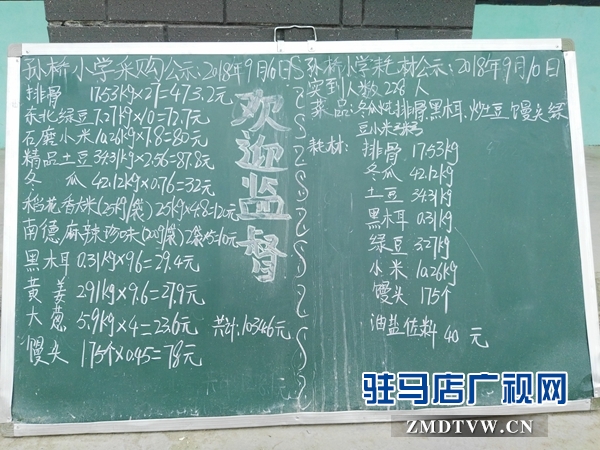 孙桥小学采购公示:2018年9月10日
排骨 17.53kg×27=473.2元
东北绿豆 7.27kg×10=72.7元
石磨小米 10.26kg×7.8=80元
精品土豆 34.31kg×2.56=87.8元
冬瓜 42.12kg×0.76=32元
稻花香大米(25kg/袋) 25kg×4.8=120元
南德麻辣珍味(200g/袋) 2袋×5=10元
黑木耳 0.31kg×96=29.4元
黄姜 2.91kg×9.6=27.9元
大葱 5.9kg×4=23.6元 共计:1034.6元
馒头 175个×0.45=78元
欢迎监督
孙桥小学耗材公示:2018年9月10日
实到人数:228人
菜品:冬瓜炖排骨黑木耳.炒土豆 馒头 绿
豆小米粥
耗材: 排骨 17.53kg
冬瓜 42.12kg
土豆 34.31kg
黑木耳 0.31kg
绿豆 3.27kg
小米 10.26kg
馒头 175个
油盐佐料 40元
驻马店广视网
WWW.ZMDTVW.CN